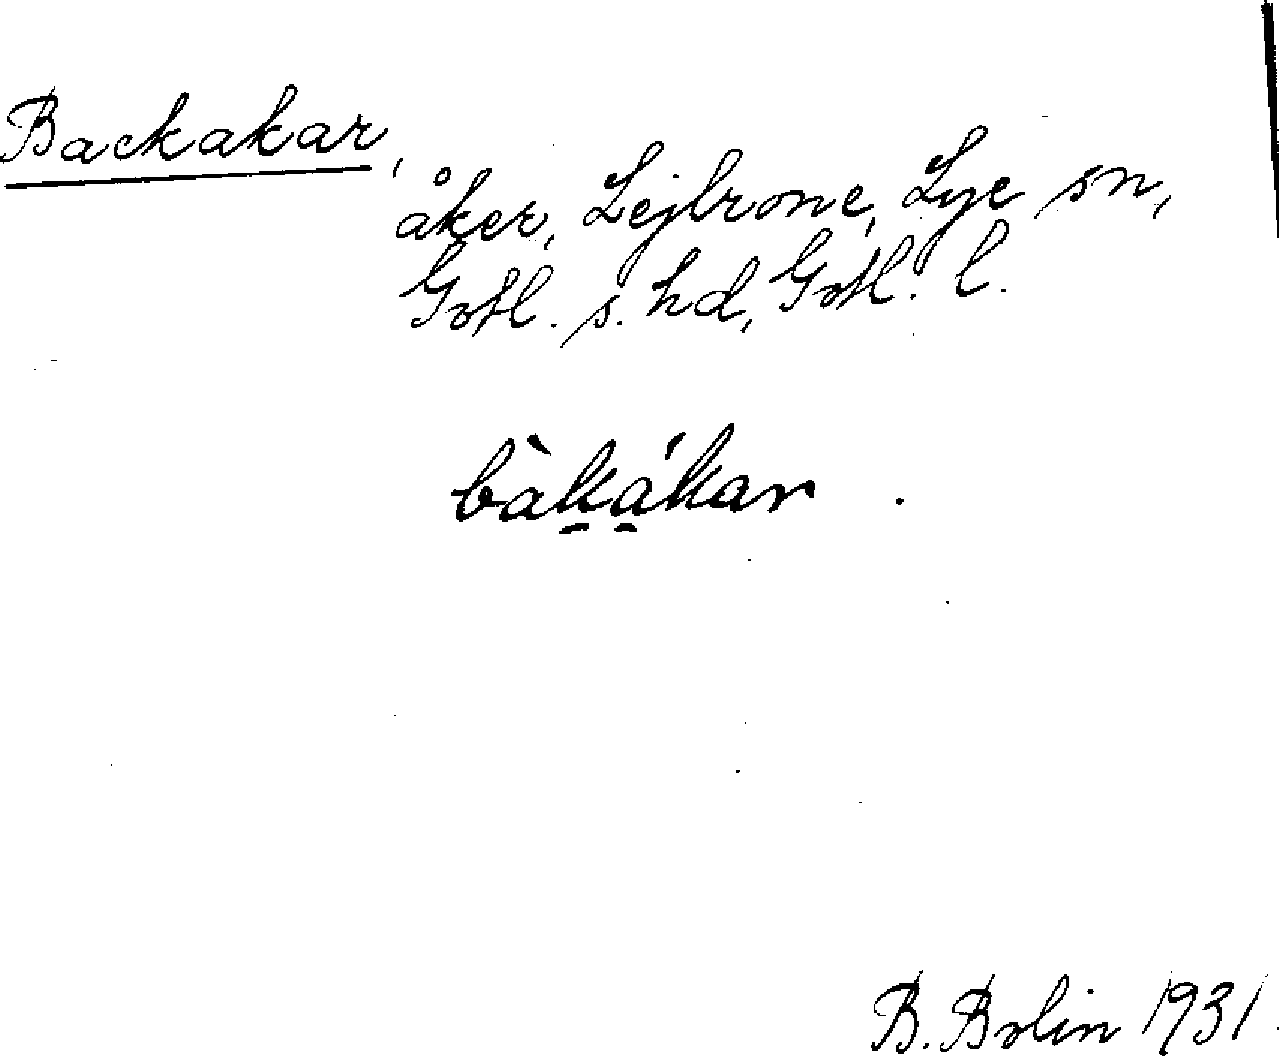 Backakar,
åker, Lejbrone, Lye sn,
Gotl. s. hd, Gotl. l.
bàká̠kar.
B. Bolin 1931.